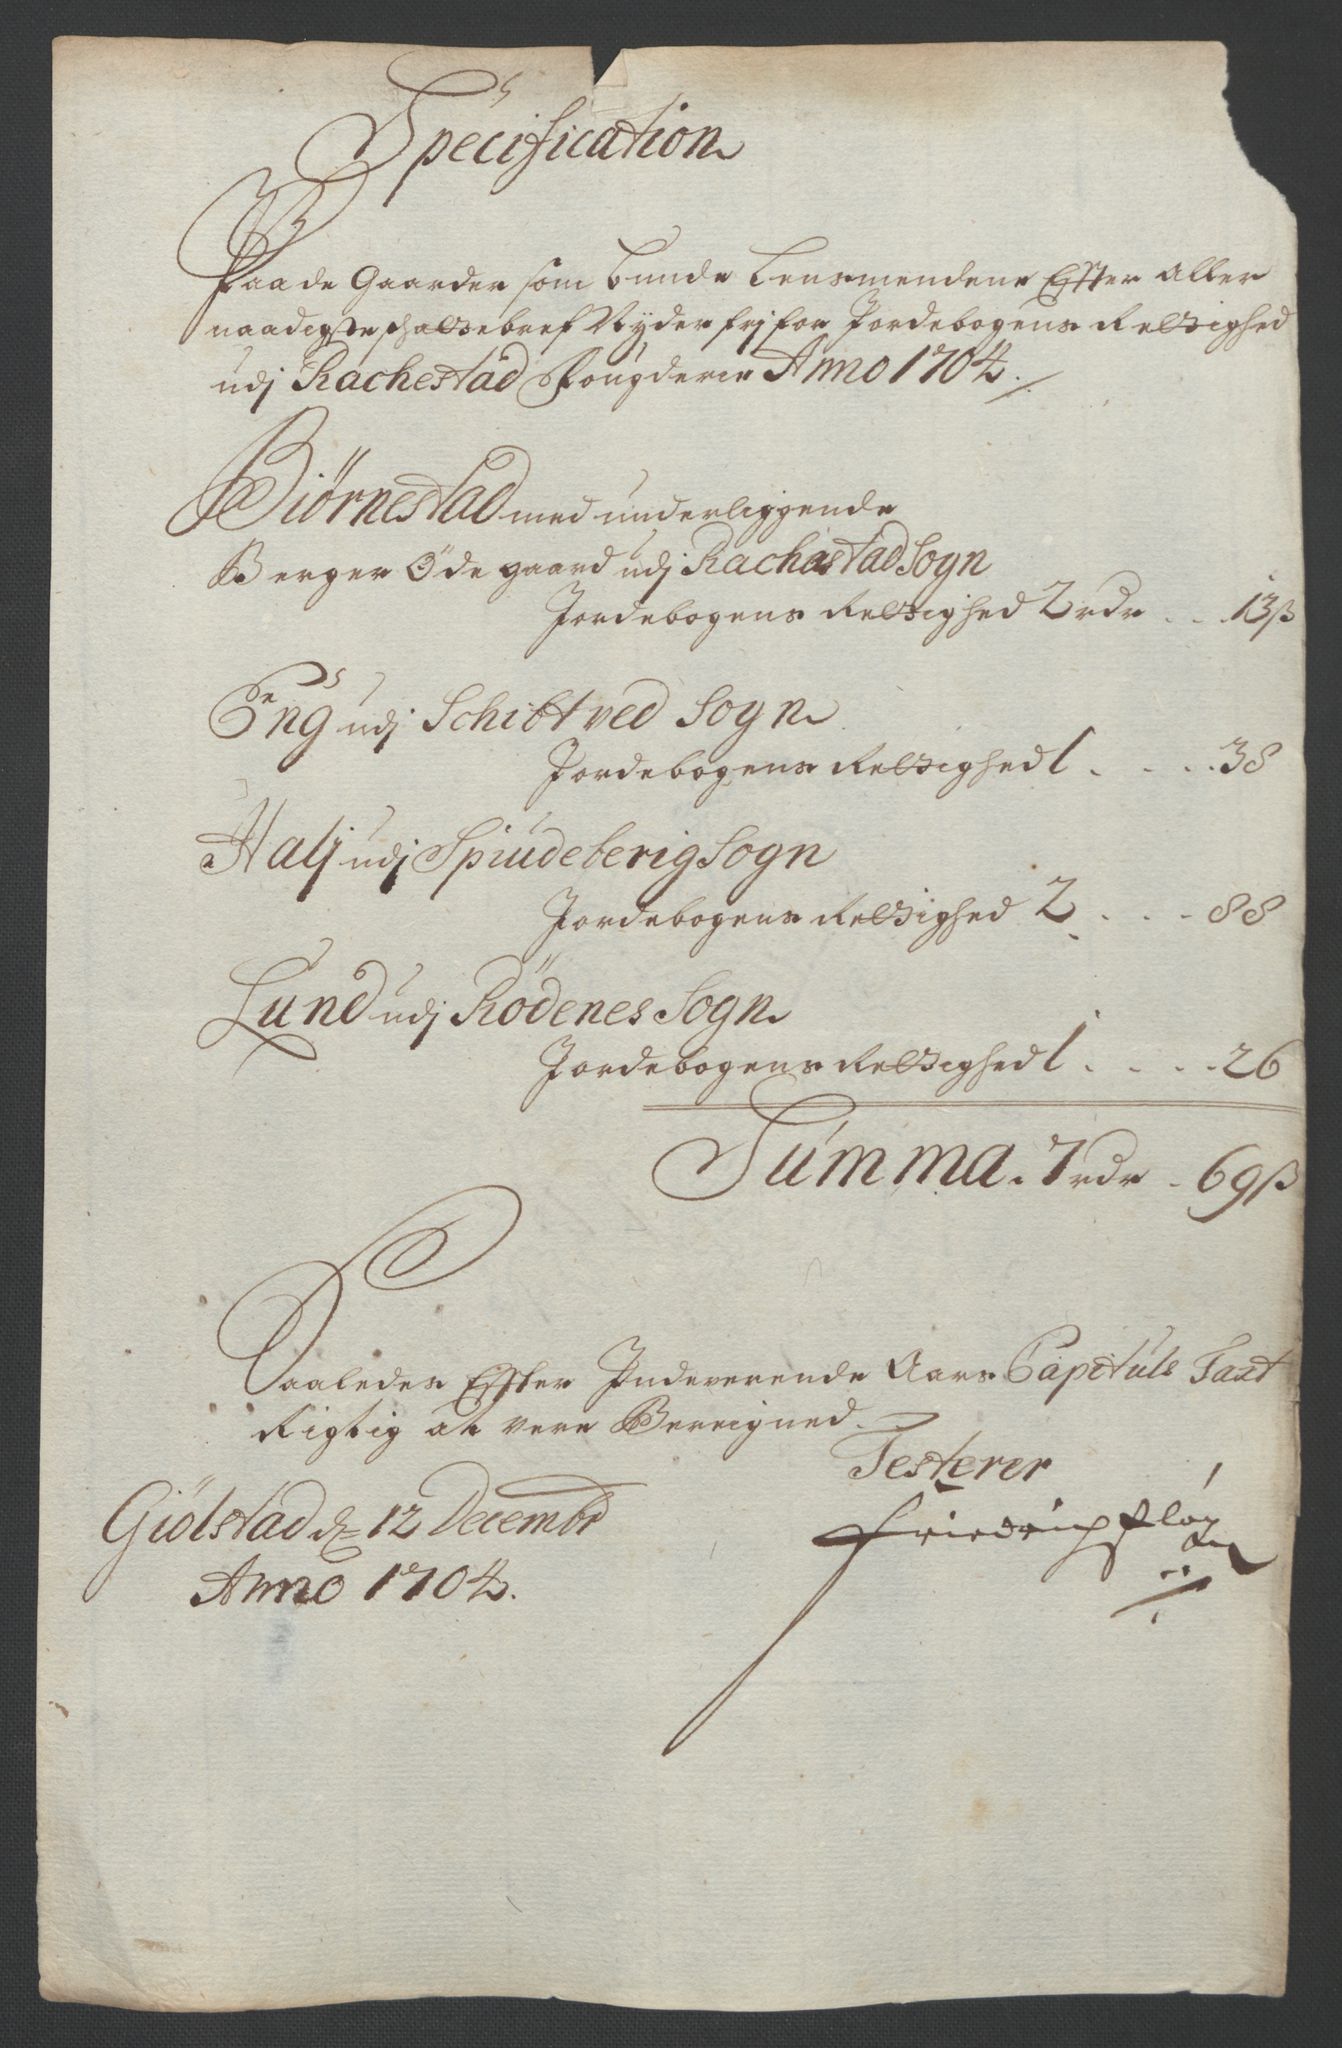 Specification
Paa de Gaarder som bunde Lensmendene Effter Aller
naadigste schattebref Nyder frj for Jordebogens Retzighed
udj Rachestad Fougderie Anno 1704.
Biörnestad med underliggende
Berger Öde gaard udj Rachestad Sogn
Jordebogens Retzighed 2 rdr . . 13 ß
Eng udj Schibtved Sogn
Jordebogens Retzighed 1 . . . . 38
Halj udj Spiudeberig Sogn
Jordebogens Retzighed 2 . . . 88
Lund udj Rödenes Sogn
Jordebogens Retzighed 1 . . . . 26
Summa . 7 rdr . 69 ß
Saaledes Effter Indeverende Aars Capituls Taxt
Rigtig at vere Bereigned.
Testerer
Giölstad d 12 Decembr
Friedrich
Anno 1704.